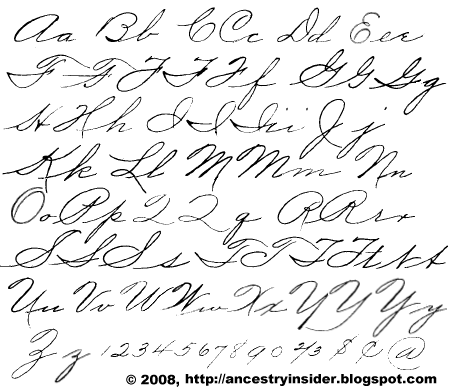 Aa Bb CCc Dd Eee
F F F F F f G G G g
H H h I I I i i J j
K k L l M M m N n
O o P p 2 2 q R R r r
S S S s T T T T t t t
U u V v W W w X x Y Y Y y
Z z 1 2 3 4 5 6 7 8 9 0 2/3 $ ¢ @
© 2008, http://ancestryinsider.blogspot.com